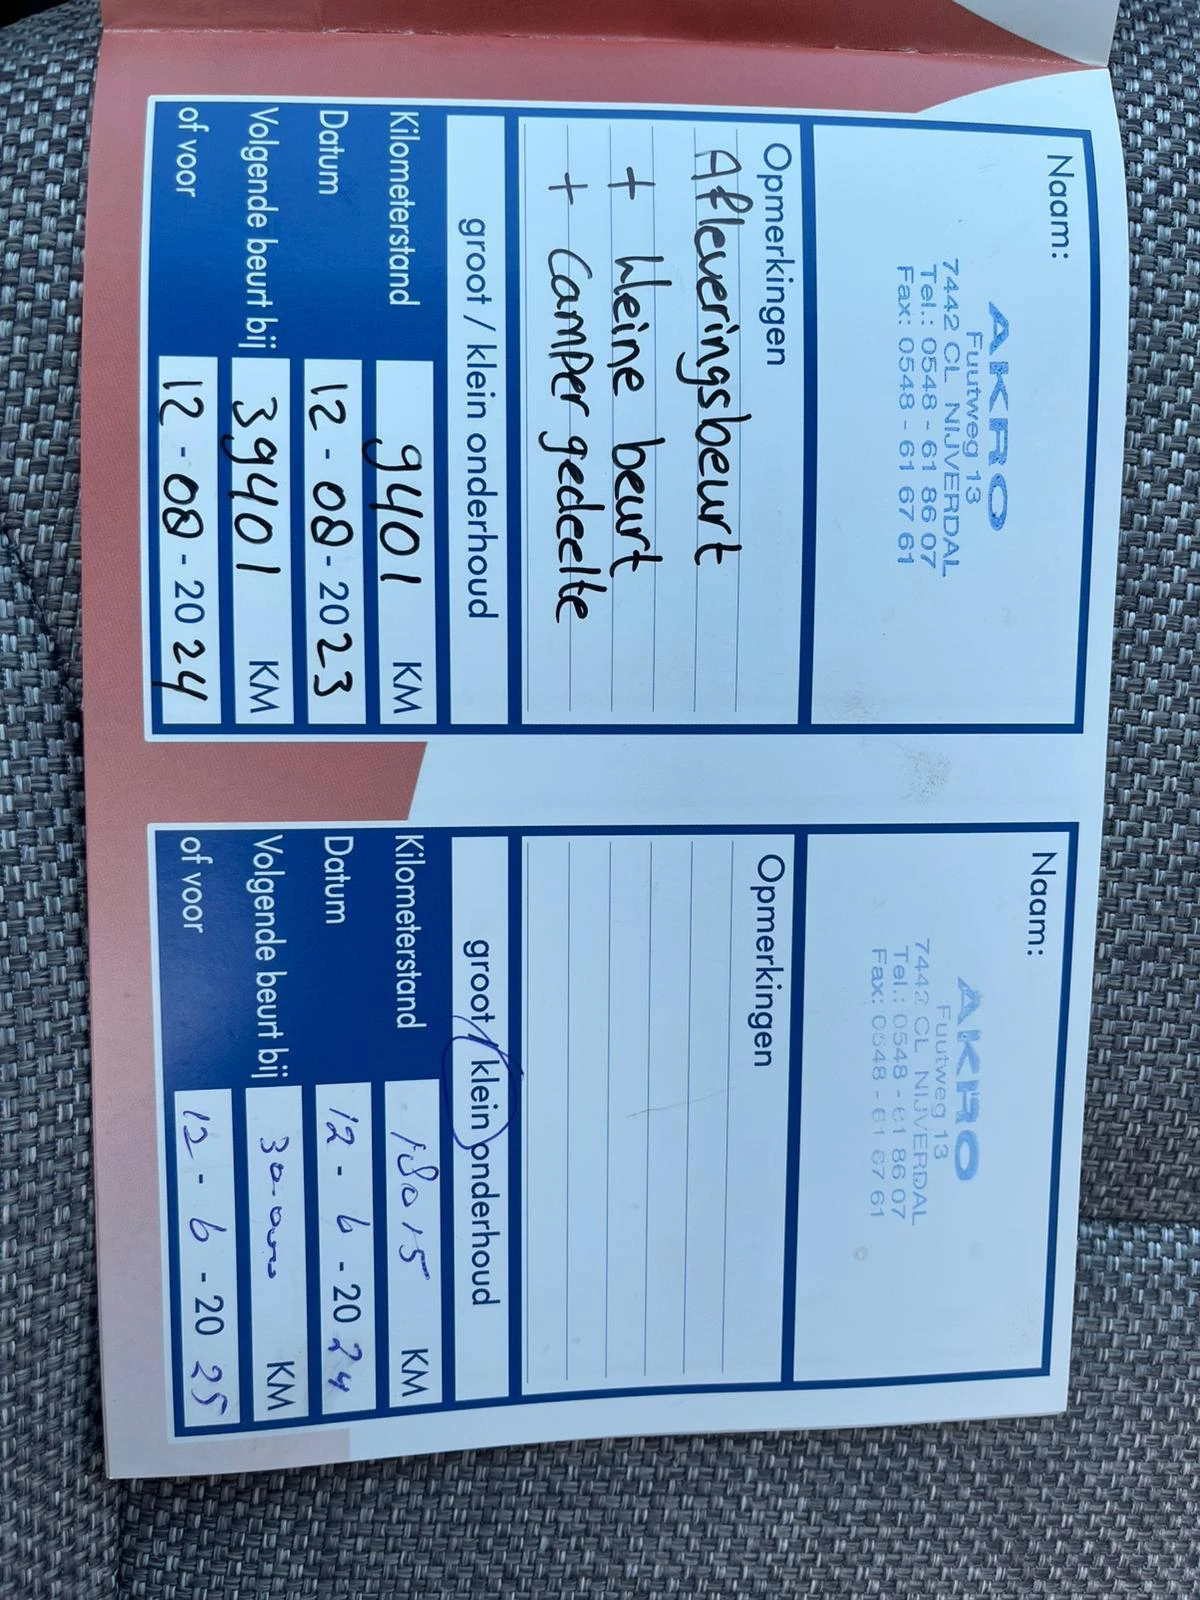 Naam:
AKRO
Fuutweg 13
7442 CL NIJVERDAL
Tel.: 0548 - 61 86 07
Fax: 0548 - 61 67 61
Opmerkingen
Afleveringsbeurt
+ kleine beurt
+ Camper gedeelte
groot / klein onderhoud
Kilometerstand 9401 KM
Datum 12 - 08 - 2023
Volgende beurt bij 39401 KM
of voor 12 - 08 - 2024
Naam:
AKRO
Fuutweg 13
7442 CL NIJVERDAL
Tel.: 0548 - 61 86 07
Fax: 0548 - 61 67 61
Opmerkingen
groot / klein onderhoud
Kilometerstand 18015 KM
Datum 12 - 6 - 2024
Volgende beurt bij KM
of voor 12 - 6 - 2025